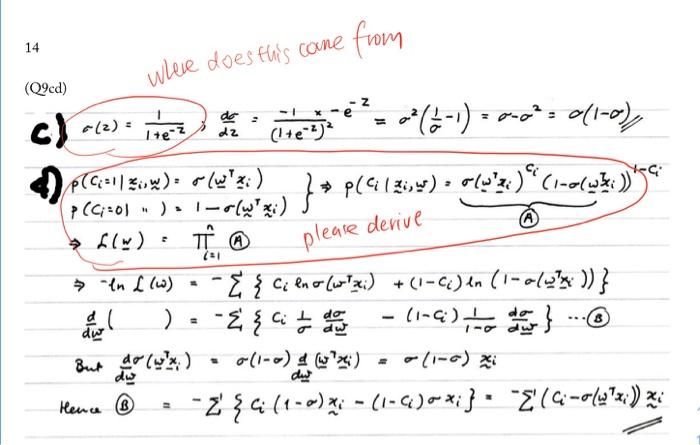 14
where does this come from
(Q9cd)
c) σ(z) = 1/(1+e^-z) ; dσ/dz = -1/(1+e^-z)² × -e^-z = σ²(1/σ - 1) = σ-σ² = σ(1-σ)
d) p(Cᵢ=1|xᵢ,w) = σ(wᵀxᵢ) } ⇒ p(Cᵢ|xᵢ,w) = σ(wᵀxᵢ)^Cᵢ (1-σ(wᵀxᵢ))^1-Cᵢ
p(Cᵢ=0| " ) = 1-σ(wᵀxᵢ) Ⓐ
⇒ L(w) = ∏ⁿᵢ₌₁ Ⓐ please derive
⇒ -ln L(w) = -Σ { Cᵢ ln σ(wᵀxᵢ) + (1-Cᵢ) ln (1-σ(wᵀxᵢ)) }
d/dw ( ) = -Σ { Cᵢ 1/σ dσ/dw - (1-Cᵢ) 1/(1-σ) dσ/dw } ...Ⓑ
But dσ(wᵀxᵢ)/dw = σ(1-σ) d/dw (wᵀxᵢ) = σ(1-σ) xᵢ
Hence Ⓑ = -Σ { Cᵢ (1-σ) xᵢ - (1-Cᵢ) σ xᵢ } = -Σ (Cᵢ-σ(wᵀxᵢ)) xᵢ